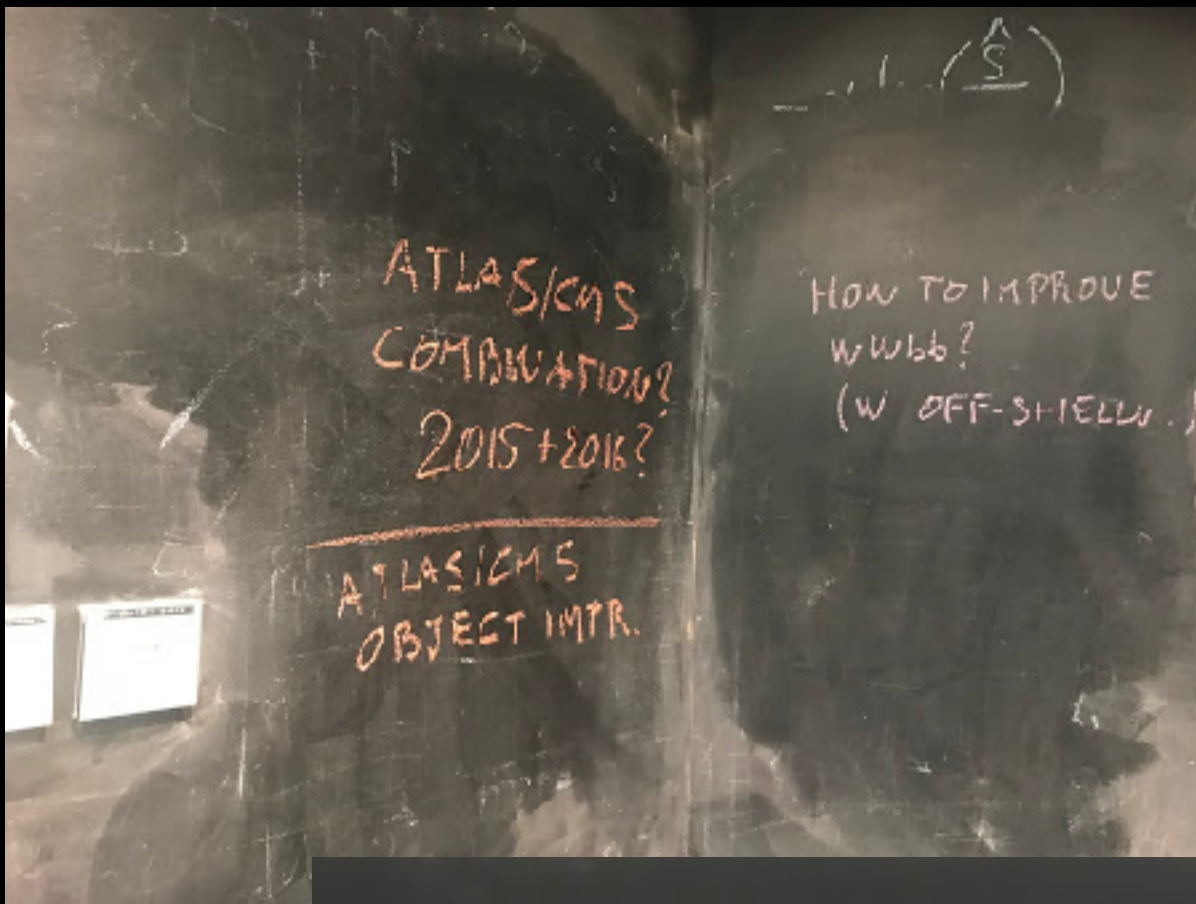 ATLAS/CMS
COMBINATION?
2015+2016?
ATLAS/CMS
OBJECT IMPR.
HOW TO IMPROVE
WWbb?
(W OFF-SHELL